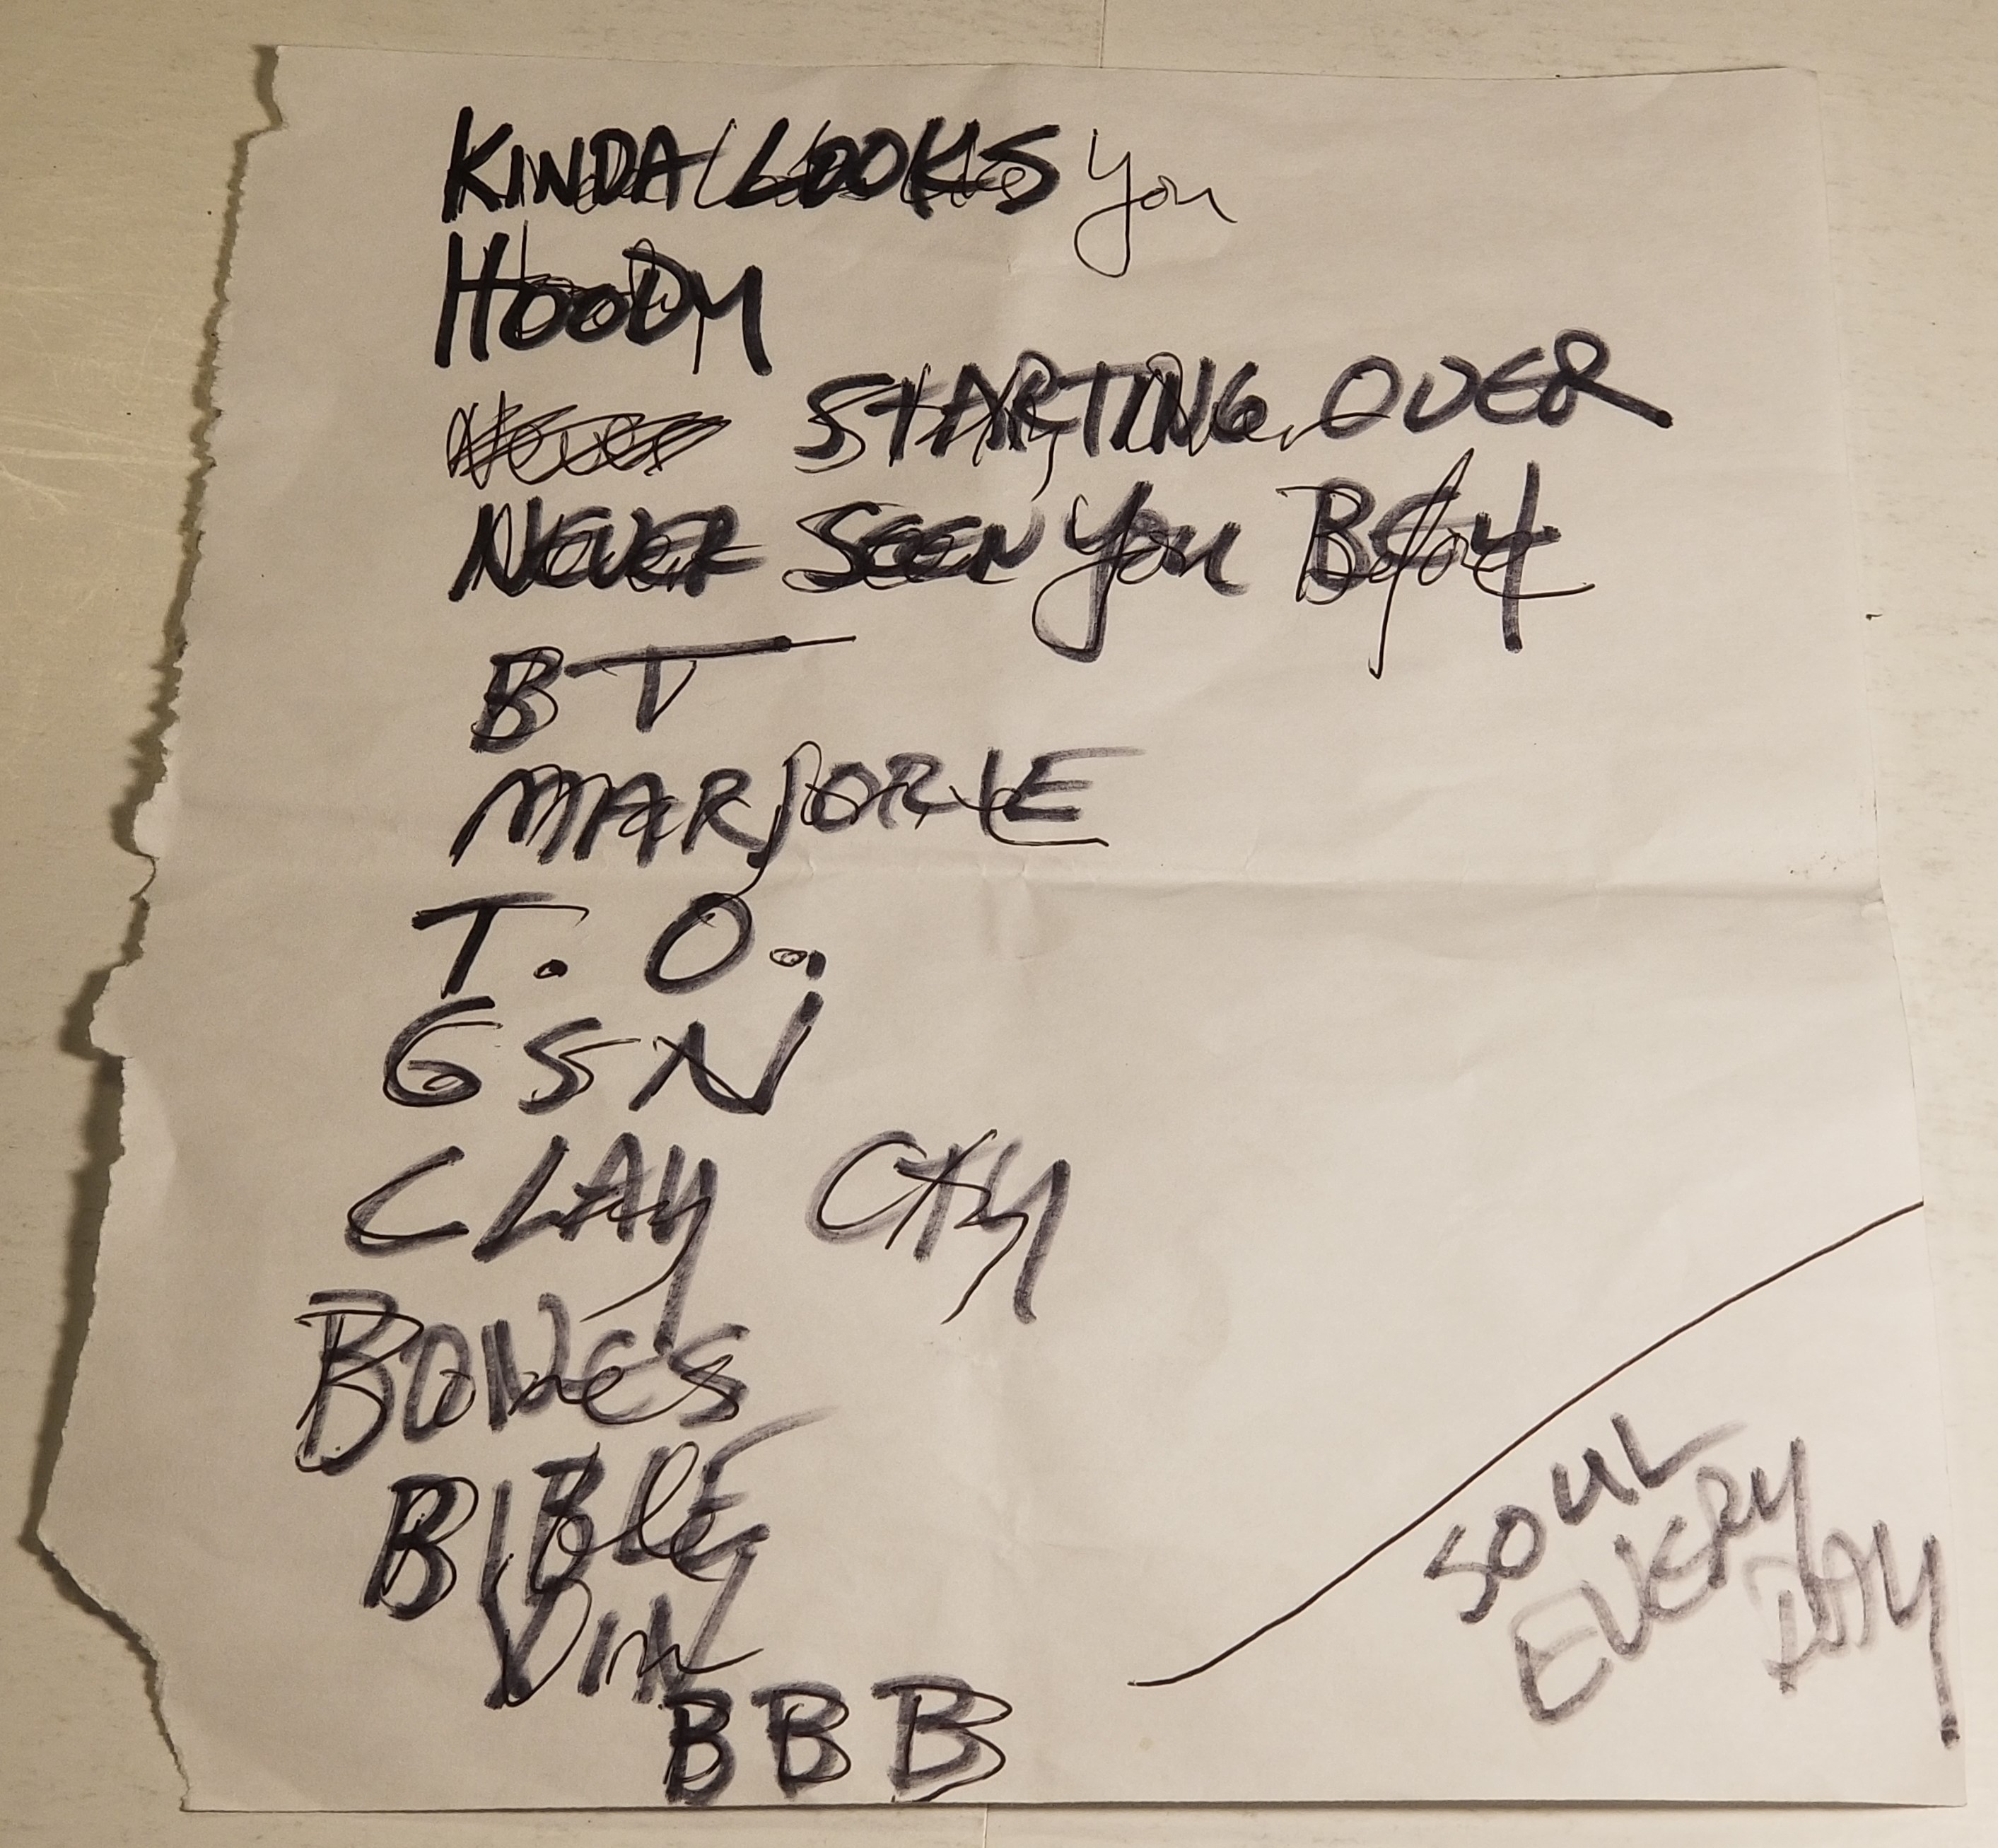 KINDA LOOKS you
HOODY
STARTING OVER
NEVER SEEN You B4
BT
MARJORIE
T. O.
GSN
CLAY CTY
BONES
BIBLE
BBB
SOUL
EVERY
DAY